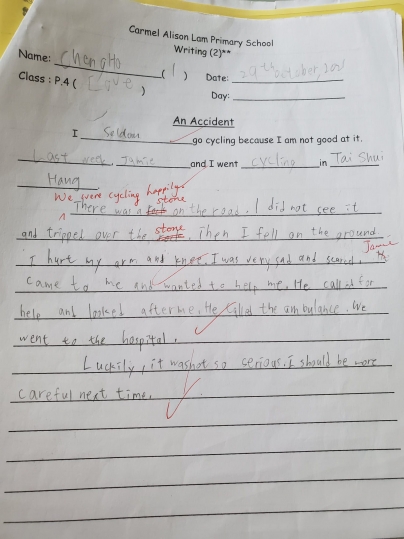 Carmel Alison Lam Primary School
Writing (2)**
Name: ChengHo ( 1 ) Date: 29th October, 2021
Class : P.4 ( Love ) Day:
An Accident
I Seldom go cycling because I am not good at it.
Last week, Jamie and I went cycling in Tai Shui
Hang
We were cycling happily. stone
There was a on the road. I did not see it
and tripped over the stone. Then I fell on the ground
I hurt my arm and knee. I was very sad and scared. Jamie
came to me and wanted to help me. He called for
help and looked after me. He called the ambulance. We
went to the hospital.
Luckily, it was not so serious. I should be more
careful next time.